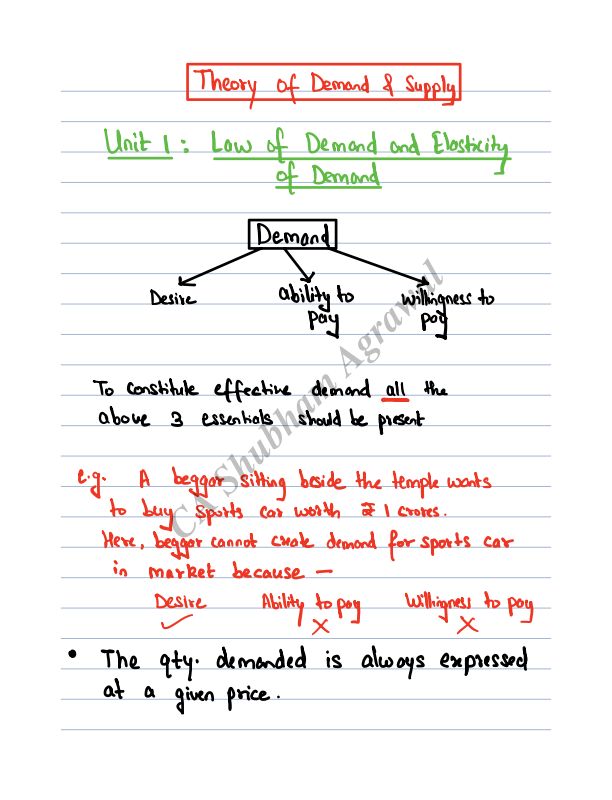 Theory of Demand & Supply
Unit 1 : Law of Demand and Elasticity
of Demand
Demand
Desire
ability to
pay
willingness to
pay
To constitute effective demand all the
above 3 essentials should be present
e.g. A beggar sitting beside the temple wants
to buy sports car worth ₹ 1 crores.
Here, beggar cannot create demand for sports car
in market because —
Desire Ability to pay Willingness to pay
✓ X X
• The qty. demanded is always expressed
at a given price.
CA Shubham Agrawal